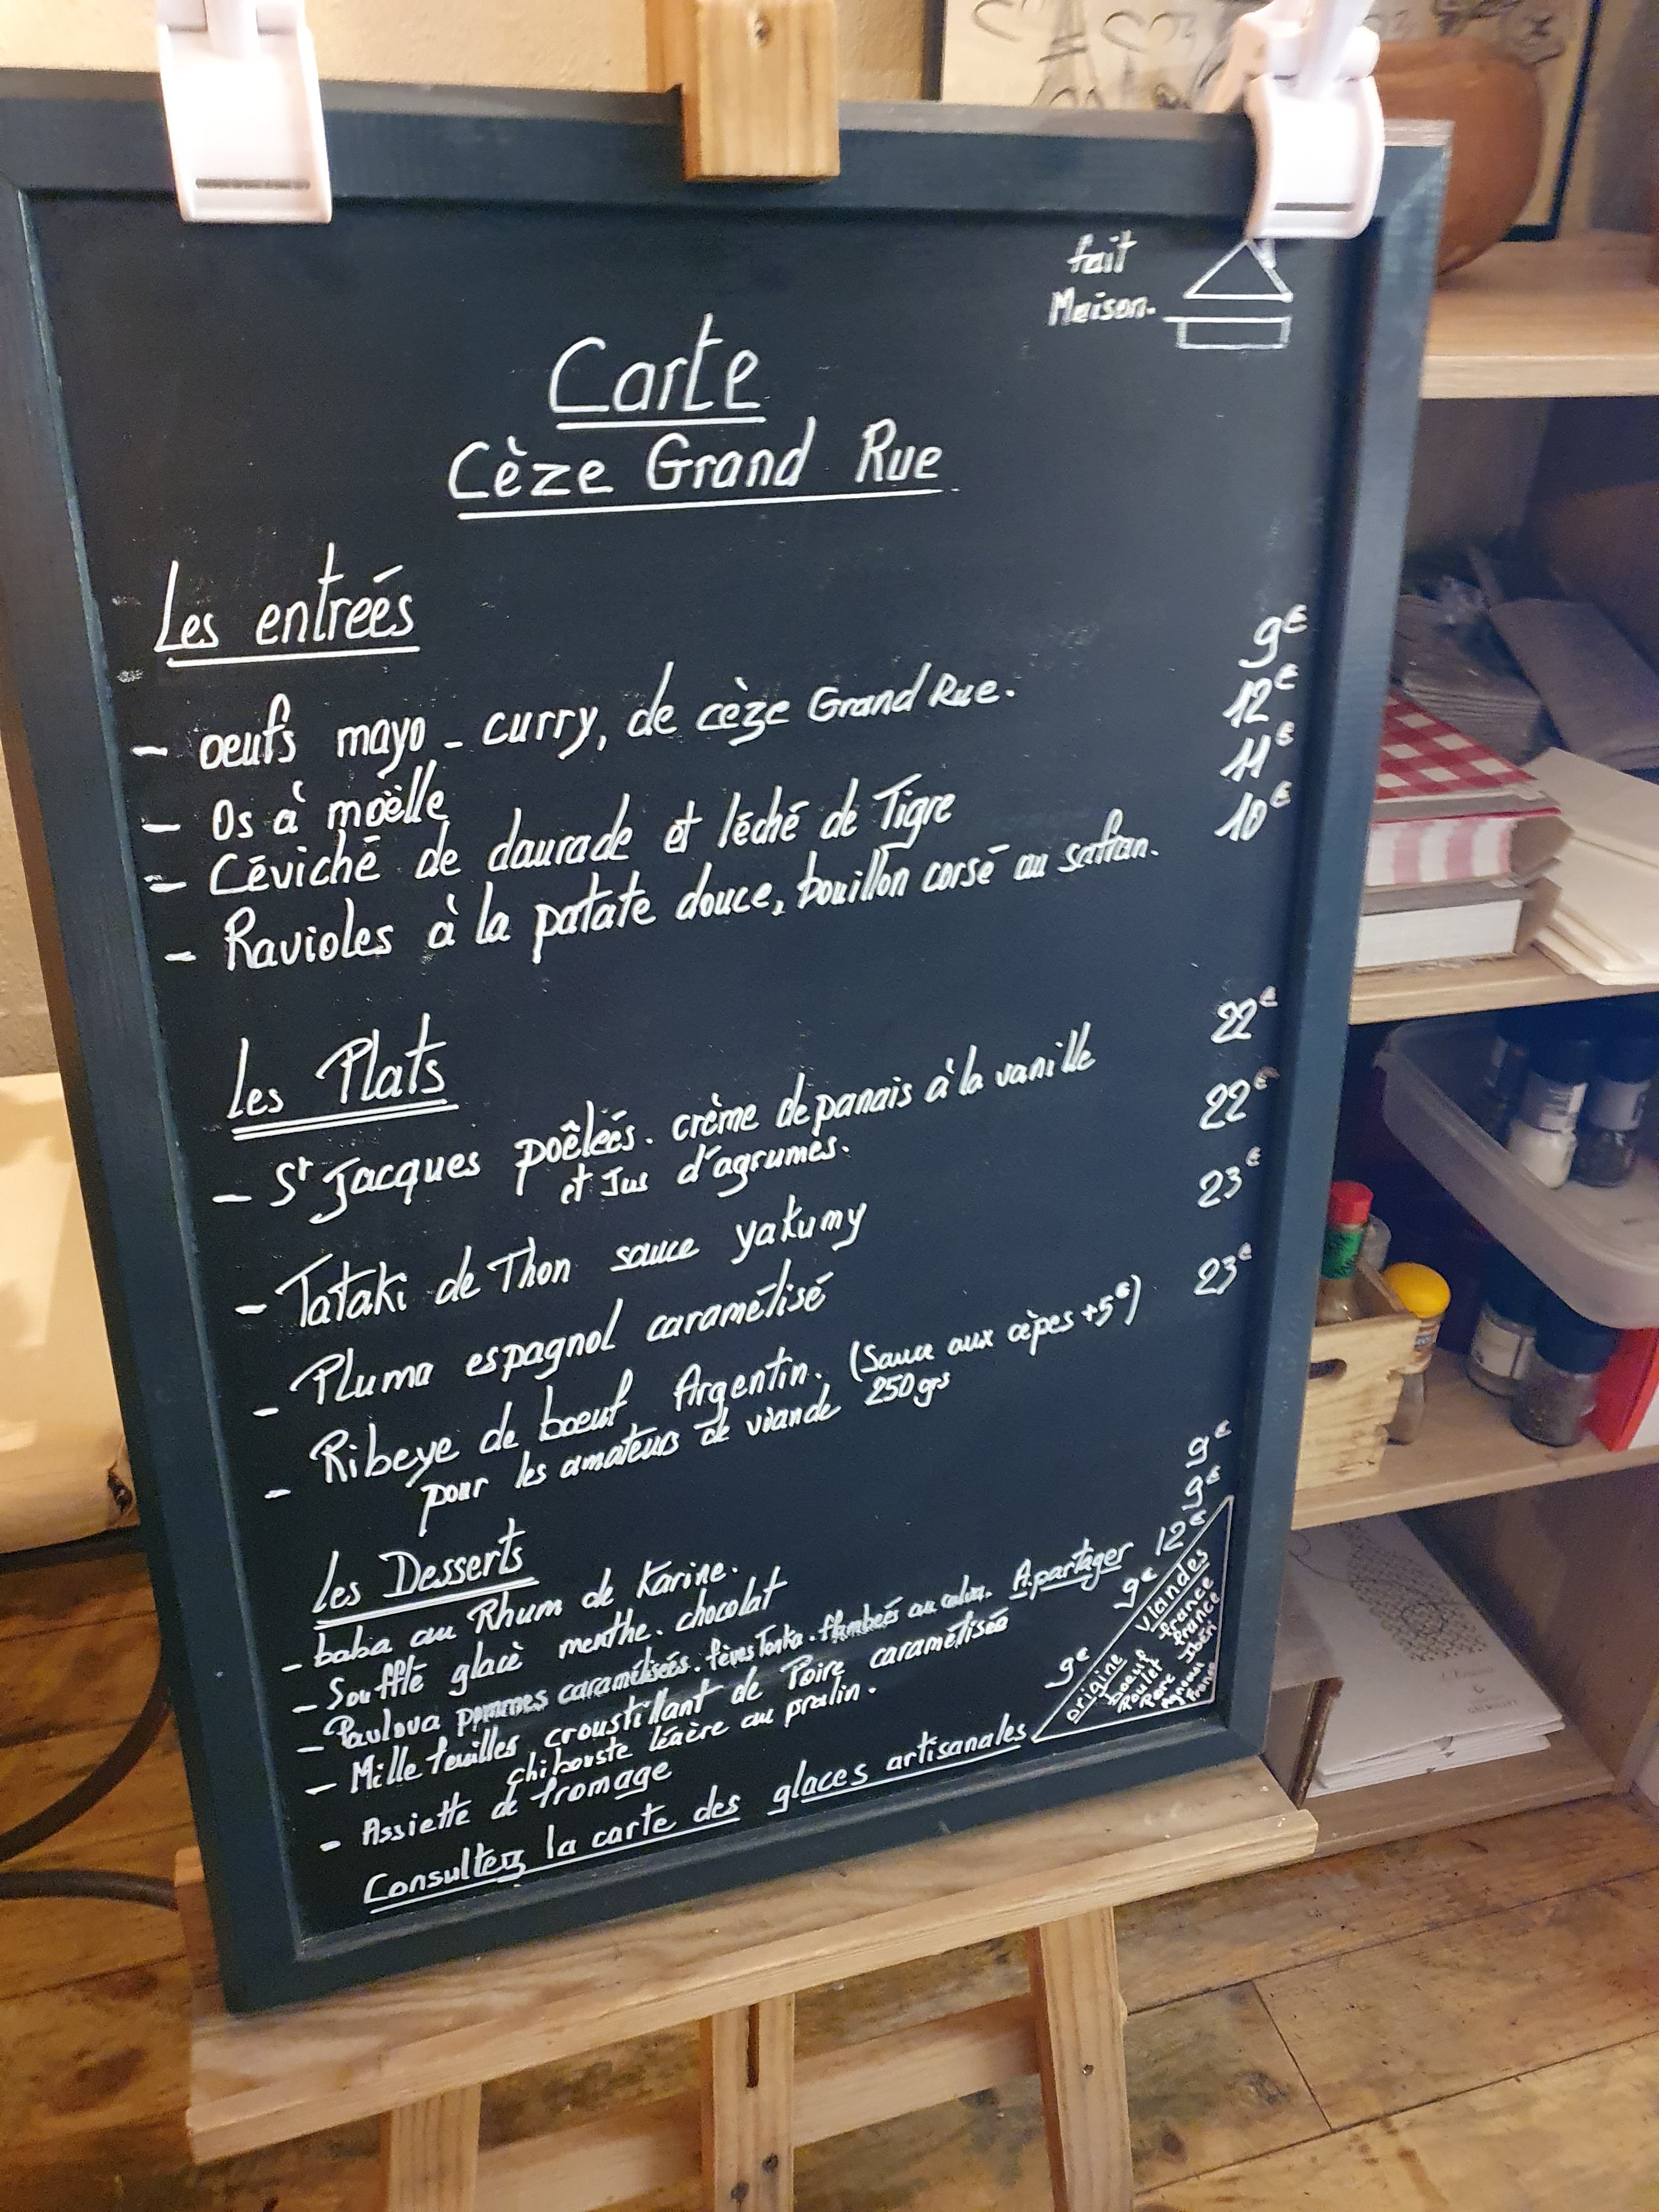 fait
Maison.
Carte
Cèze Grand Rue
Les entrées
- oeufs mayo - curry, de cèze Grand Rue. 9€
- Os à moëlle 12€
- Céviché de daurade et léché de Tigre 11€
- Ravioles à la patate douce, bouillon corsé au safran. 10€
Les Plats
- St Jacques poêlées. crème de panais à la vanille 22€
et Jus d'agrumes.
- Tataki de Thon sauce yakumy 22€
- Pluma espagnol caramélisé 23€
- Ribeye de boeuf Argentin. (Sauce aux cèpes +5€) 23€
pour les amateurs de viande 250 grs
Les Desserts
- baba au Rhum de Karine. 9€
- Soufflé glacé menthe. chocolat 9€
- Pavlova pommes caramélisées. fèves Tonka. flambées au calva. A partager 12€
- Mille feuilles croustillant de Poire caramélisée 9€
chibouste légère au pralin.
- Assiette de fromage 9€
Consultez la carte des glaces artisanales
Origine viandes
boeuf france
Poulet france
Porc Ibéri
Agneau France